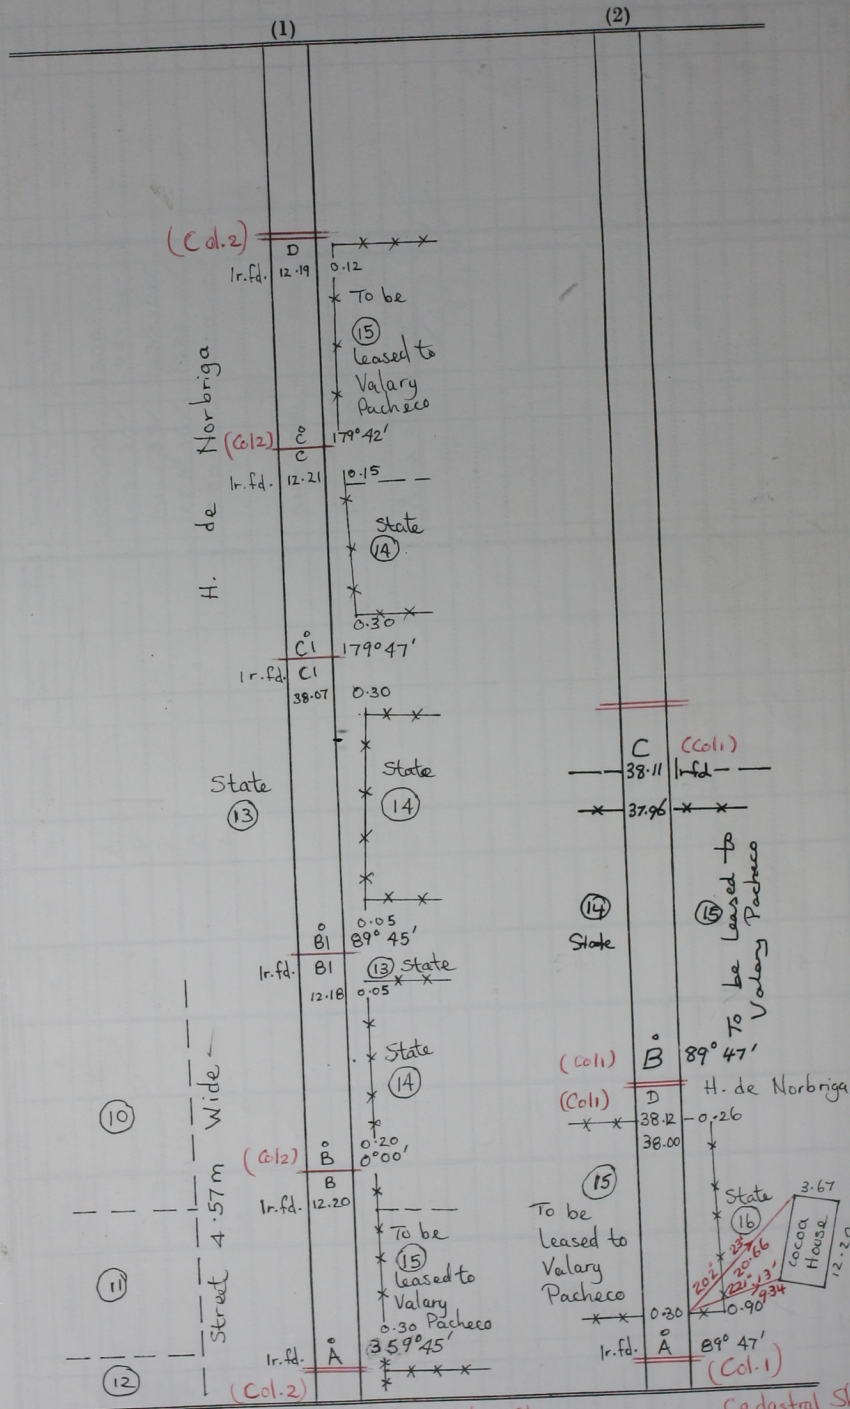 (1)
(Col.2)
D
Ir.fd. 12.19 0.12
To be
15
leased to
Valary
Pacheco
H. de Norbriga
(Col2) C 179°42'
C
Ir.fd. 12.21 0.15
State
14
0.30
C1 179°47'
Ir.fd. C1
38.07 0.30
State
13
State
14
0.05
B1 89°45'
Ir.fd. B1 13 State
12.18 0.05
State
14
10
Street 4.57m Wide
0.20
(Col2) B 0°00'
B
Ir.fd. 12.20
To be
15
leased to
Valary
Pacheco
0.30
11
Ir.fd. A 359°45'
12
(Col.2)
(2)
C (Col1)
38.11 Irfd
37.96
14
State
15
To be Leased to
Valary Pacheco
(Col1) B 89°47'
(Col1) D H. de Norbriga
38.12 0.26
38.00
15
To be
leased to
Valary
Pacheco
State
16
3.67
Cocoa
House
12.20
202° 23'
20.66
221° 13'
9.34
0.30 0.90
Ir.fd. A 89°47'
(Col.1)
Cadastral